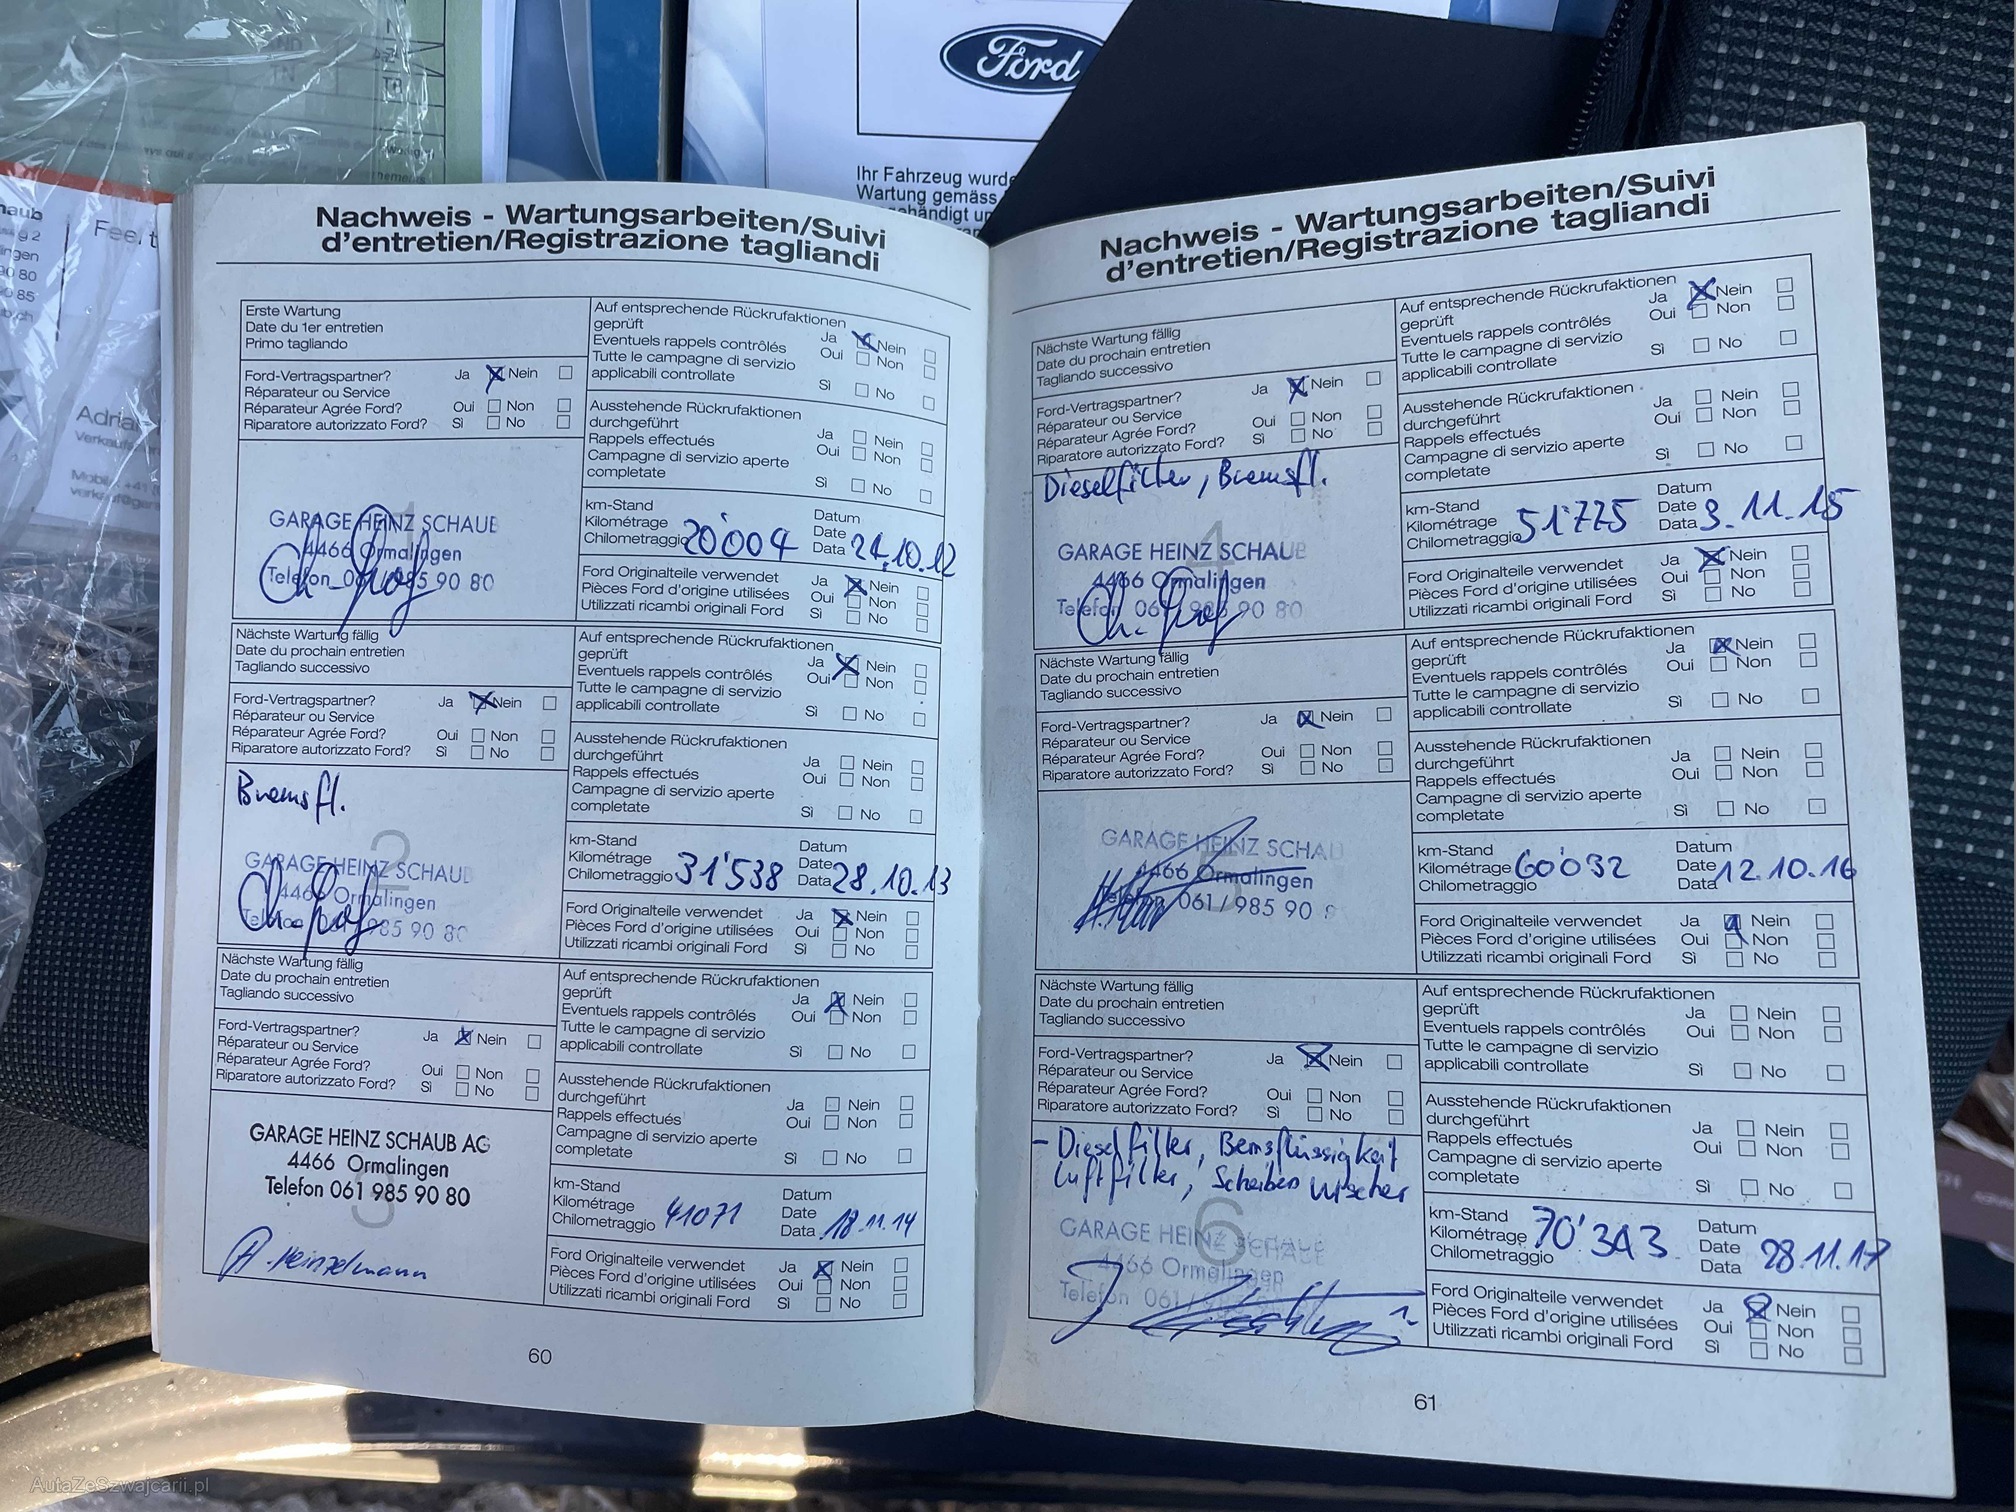 Ford
Ihr Fahrzeug wurde
Wartung gemäss
händigt
haub
Feel t
ingen
90 80
90 85
Adria
Verkauf
Mobil +41
Nachweis - Wartungsarbeiten/Suivi
d'entretien/Registrazione tagliandi
Erste Wartung
Date du 1er entretien
Primo tagliando
Ford-Vertragspartner? Ja Nein
Réparateur ou Service
Réparateur Agrée Ford? Oui Non
Riparatore autorizzato Ford? Sì No
1
GARAGE HEINZ SCHAUB
4466 Ormalingen
Telefon 061 985 90 80
Auf entsprechende Rückrufaktionen
geprüft Ja Nein
Eventuels rappels contrôlés Oui Non
Tutte le campagne di servizio
applicabili controllate Sì No
Ausstehende Rückrufaktionen
durchgeführt Ja Nein
Rappels effectués Oui Non
Campagne di servizio aperte
completate Sì No
km-Stand Datum
Kilométrage Date
Chilometraggio 20'004 Data 24.10.12
Ford Originalteile verwendet Ja Nein
Pièces Ford d'origine utilisées Oui Non
Utilizzati ricambi originali Ford Sì No
Nächste Wartung fällig
Date du prochain entretien
Tagliando successivo
Ford-Vertragspartner? Ja Nein
Réparateur ou Service
Réparateur Agrée Ford? Oui Non
Riparatore autorizzato Ford? Sì No
Bremsfl.
2
GARAGE HEINZ SCHAUB
4466 Ormalingen
Telefon 061 985 90 80
Auf entsprechende Rückrufaktionen
geprüft Ja Nein
Eventuels rappels contrôlés Oui Non
Tutte le campagne di servizio
applicabili controllate Sì No
Ausstehende Rückrufaktionen
durchgeführt Ja Nein
Rappels effectués Oui Non
Campagne di servizio aperte
completate Sì No
km-Stand Datum
Kilométrage Date
Chilometraggio 31'538 Data 28.10.13
Ford Originalteile verwendet Ja Nein
Pièces Ford d'origine utilisées Oui Non
Utilizzati ricambi originali Ford Sì No
Nächste Wartung fällig
Date du prochain entretien
Tagliando successivo
Ford-Vertragspartner? Ja Nein
Réparateur ou Service
Réparateur Agrée Ford? Oui Non
Riparatore autorizzato Ford? Sì No
GARAGE HEINZ SCHAUB AG
4466 Ormalingen
Telefon 061 985 90 80
3
A. Heinzelmann
Auf entsprechende Rückrufaktionen
geprüft Ja Nein
Eventuels rappels contrôlés Oui Non
Tutte le campagne di servizio
applicabili controllate Sì No
Ausstehende Rückrufaktionen
durchgeführt Ja Nein
Rappels effectués Oui Non
Campagne di servizio aperte
completate Sì No
km-Stand Datum
Kilométrage Date
Chilometraggio 41071 Data 18.11.14
Ford Originalteile verwendet Ja Nein
Pièces Ford d'origine utilisées Oui Non
Utilizzati ricambi originali Ford Sì No
60
Nachweis - Wartungsarbeiten/Suivi
d'entretien/Registrazione tagliandi
Nächste Wartung fällig
Date du prochain entretien
Tagliando successivo
Ford-Vertragspartner? Ja Nein
Réparateur ou Service
Réparateur Agrée Ford? Oui Non
Riparatore autorizzato Ford? Sì No
Dieselfilter, Bremsfl.
4
GARAGE HEINZ SCHAUB
4466 Ormalingen
Telefon 061 / 985 90 80
Auf entsprechende Rückrufaktionen
geprüft Ja Nein
Eventuels rappels contrôlés Oui Non
Tutte le campagne di servizio
applicabili controllate Sì No
Ausstehende Rückrufaktionen
durchgeführt Ja Nein
Rappels effectués Oui Non
Campagne di servizio aperte
completate Sì No
km-Stand Datum
Kilométrage Date
Chilometraggio 51'775 Data 3.11.15
Ford Originalteile verwendet Ja Nein
Pièces Ford d'origine utilisées Oui Non
Utilizzati ricambi originali Ford Sì No
Nächste Wartung fällig
Date du prochain entretien
Tagliando successivo
Ford-Vertragspartner? Ja Nein
Réparateur ou Service
Réparateur Agrée Ford? Oui Non
Riparatore autorizzato Ford? Sì No
5
GARAGE HEINZ SCHAU
4466 Ormalingen
Telefon 061 / 985 90 8
Auf entsprechende Rückrufaktionen
geprüft Ja Nein
Eventuels rappels contrôlés Oui Non
Tutte le campagne di servizio
applicabili controllate Sì No
Ausstehende Rückrufaktionen
durchgeführt Ja Nein
Rappels effectués Oui Non
Campagne di servizio aperte
completate Sì No
km-Stand Datum
Kilométrage 60'032 Date
Chilometraggio Data 12.10.16
Ford Originalteile verwendet Ja Nein
Pièces Ford d'origine utilisées Oui Non
Utilizzati ricambi originali Ford Sì No
Nächste Wartung fällig
Date du prochain entretien
Tagliando successivo
Ford-Vertragspartner? Ja Nein
Réparateur ou Service
Réparateur Agrée Ford? Oui Non
Riparatore autorizzato Ford? Sì No
- Dieselfilter, Bremsflüssigkeit
Luftfilter, Scheibenwischer
6
GARAGE HEINZ SCHAUB
4466 Ormalingen
Telefon 061 / 985
Auf entsprechende Rückrufaktionen
geprüft Ja Nein
Eventuels rappels contrôlés Oui Non
Tutte le campagne di servizio
applicabili controllate Sì No
Ausstehende Rückrufaktionen
durchgeführt Ja Nein
Rappels effectués Oui Non
Campagne di servizio aperte
completate Sì No
km-Stand Datum
Kilométrage 70'343 Date
Chilometraggio Data 28.11.17
Ford Originalteile verwendet Ja Nein
Pièces Ford d'origine utilisées Oui Non
Utilizzati ricambi originali Ford Sì No
61
AutaZeSzwajcarii.pl